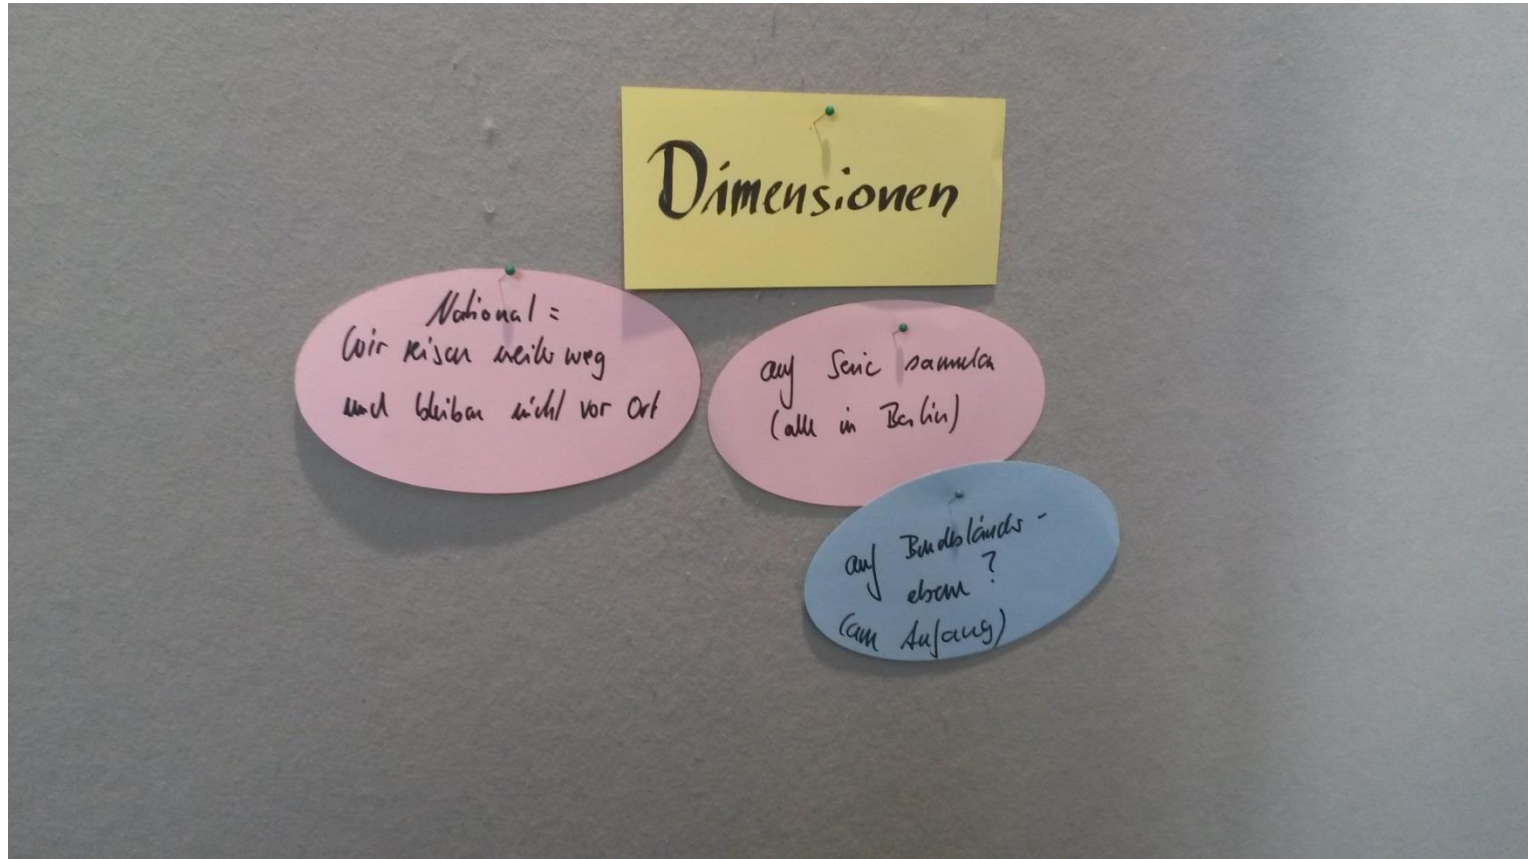 Dimensionen
National =
Wir reisen weiter weg
und bleiben nicht vor Ort
auf Seric sammeln
(alle in Berlin)
auf Bundesländer-
ebene ?
(am Anfang)